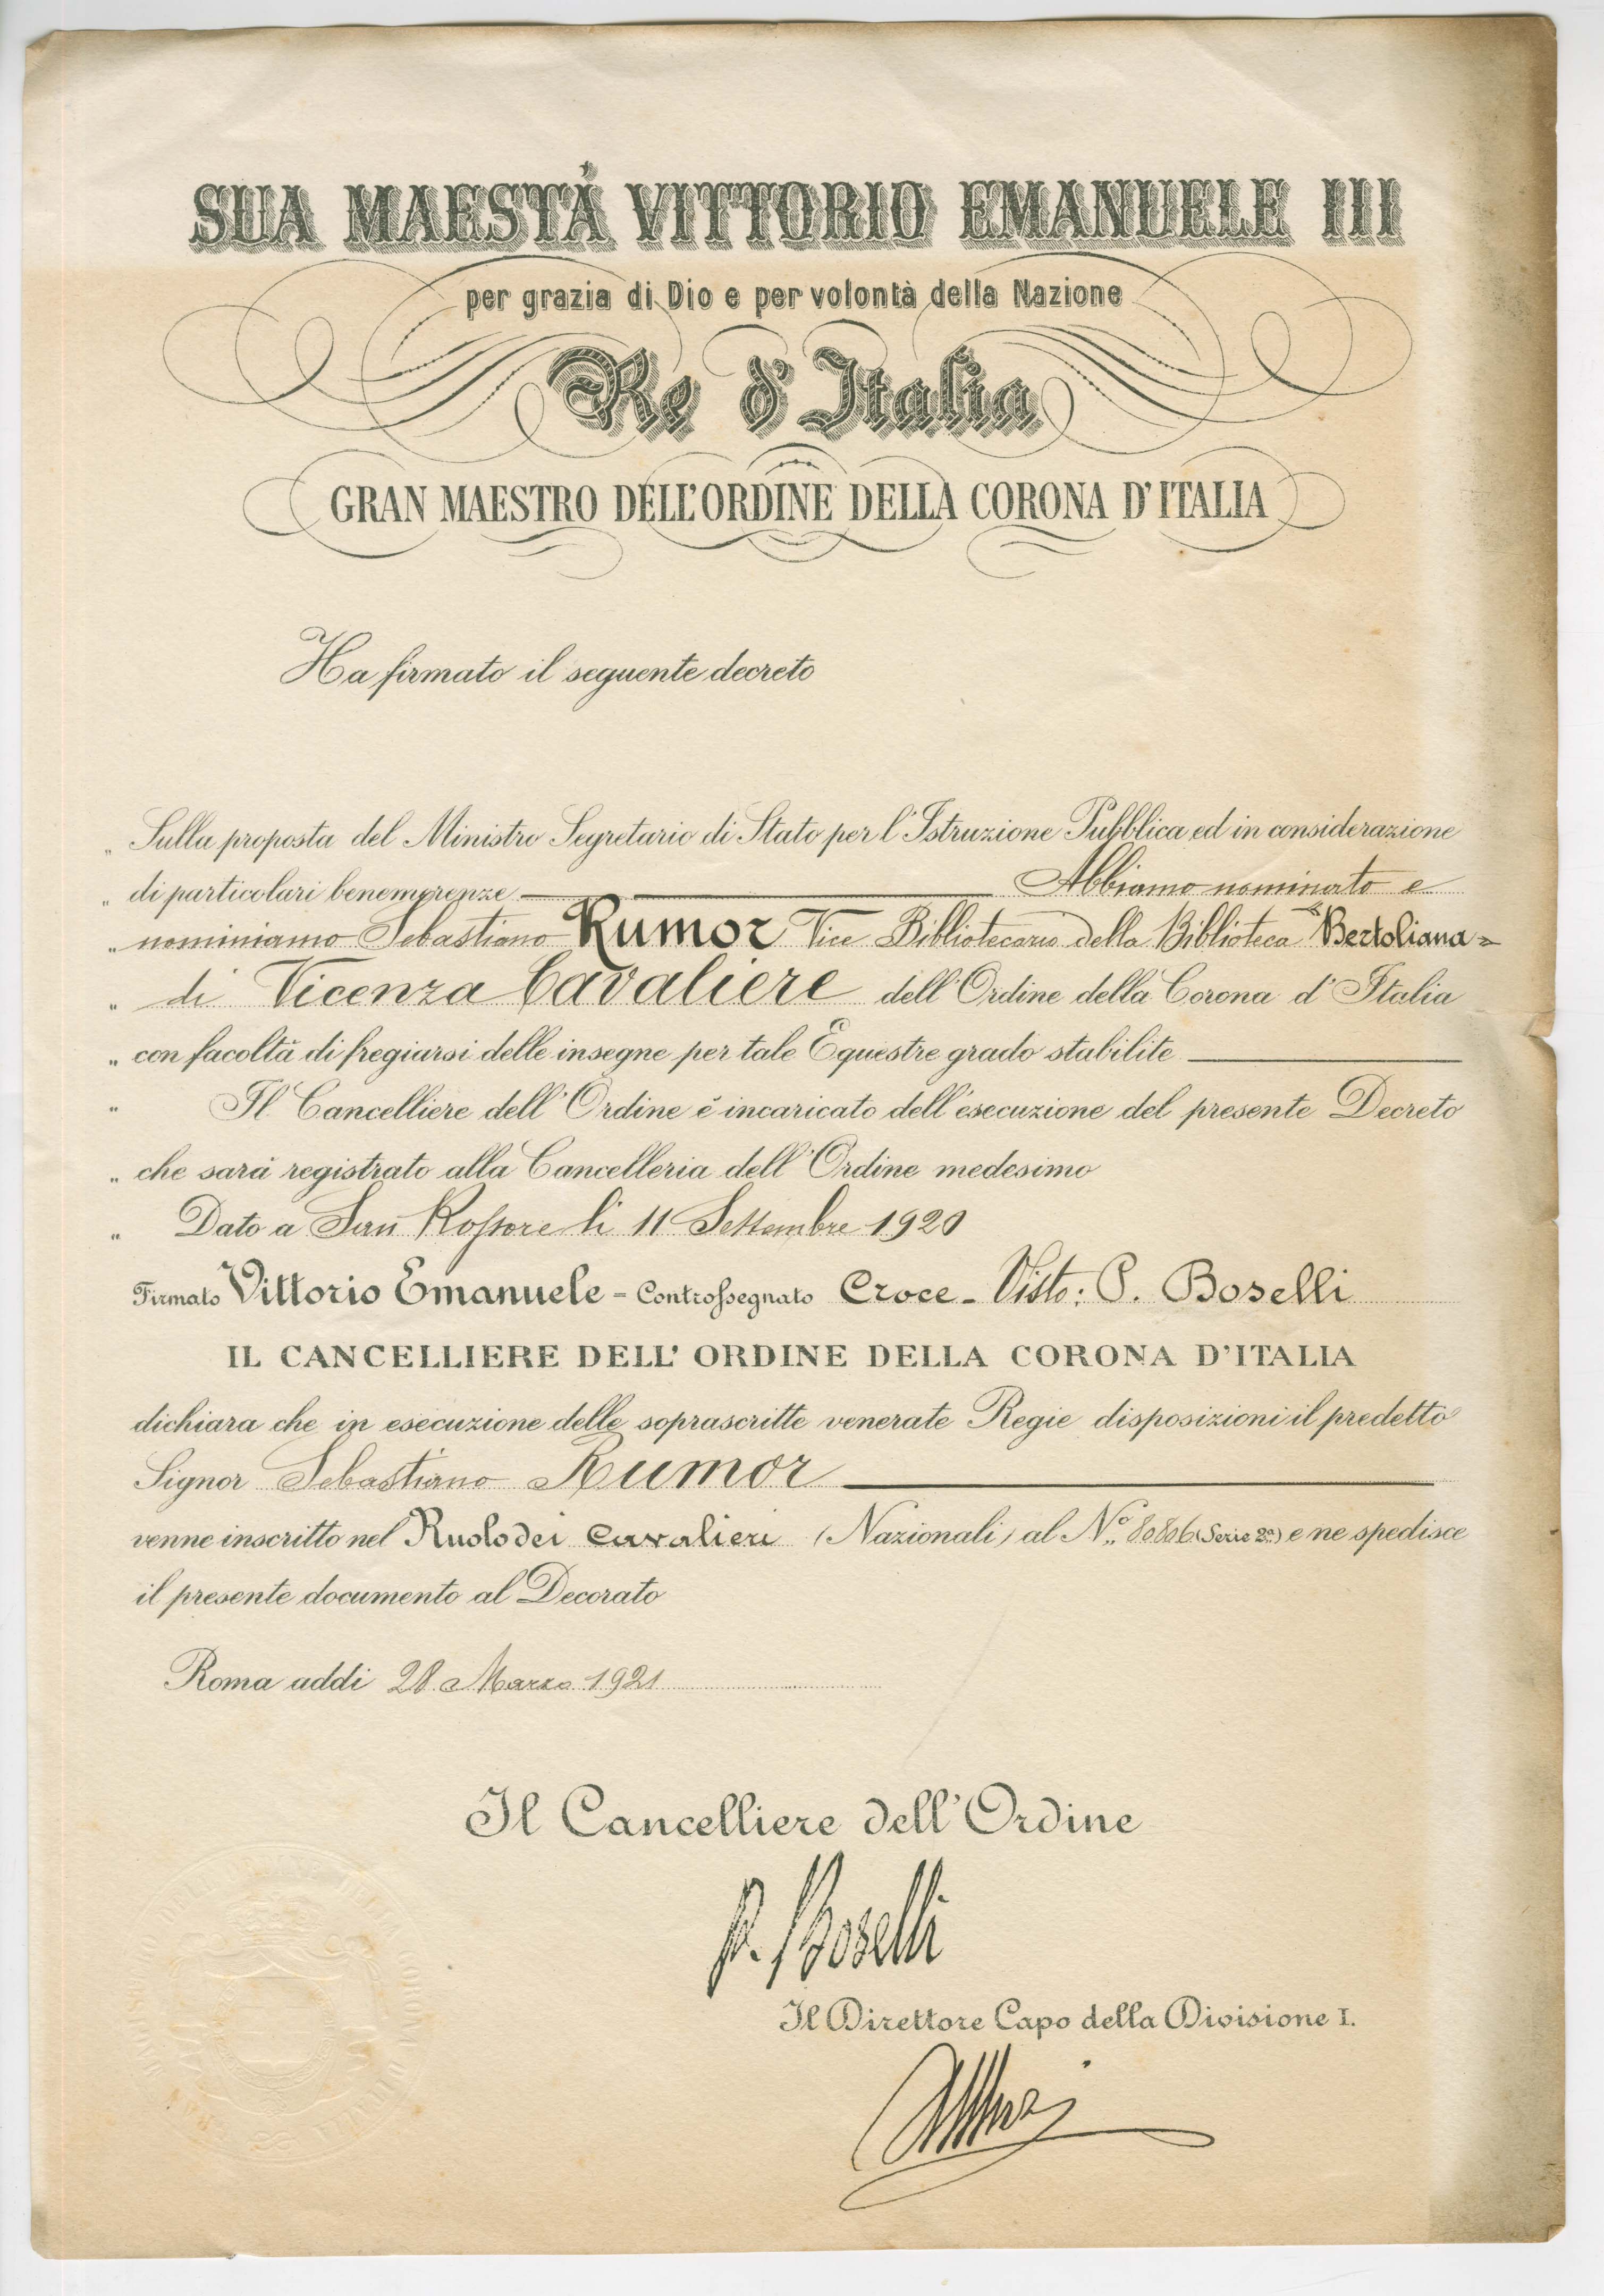 SUA MAESTÀ VITTORIO EMANUELE III
per grazia di Dio e per volontà della Nazione
Re d'Italia
GRAN MAESTRO DELL'ORDINE DELLA CORONA D'ITALIA
Ha firmato il seguente decreto
„ Sulla proposta del Ministro Segretario di Stato per l'Istruzione Pubblica ed in considerazione
„ di particolari benemerenze Abbiamo nominato e
„ nominiamo Sebastiano Rumor Vice Bibliotecario della Biblioteca "Bertoliana"
„ di Vicenza Cavaliere dell'Ordine della Corona d'Italia
„ con facoltà di fregiarsi delle insegne per tale Equestre grado stabilite
„ Il Cancelliere dell'Ordine è incaricato dell'esecuzione del presente Decreto
„ che sarà registrato alla Cancelleria dell'Ordine medesimo
„ Dato a San Rossore li 11 Settembre 1920
Firmato Vittorio Emanuele - Controssegnato Croce - Visto: P. Boselli
IL CANCELLIERE DELL' ORDINE DELLA CORONA D'ITALIA
dichiara che in esecuzione delle soprascritte venerate Regie disposizioni il predetto
Signor Sebastiano Rumor
venne inscritto nel Ruolo dei Cavalieri (Nazionali) al N.º 80806 (Serie 2ª) e ne spedisce
il presente documento al Decorato
Roma addi 28 Marzo 1921
Il Cancelliere dell'Ordine
P. Boselli
Il Direttore Capo della Divisione I.